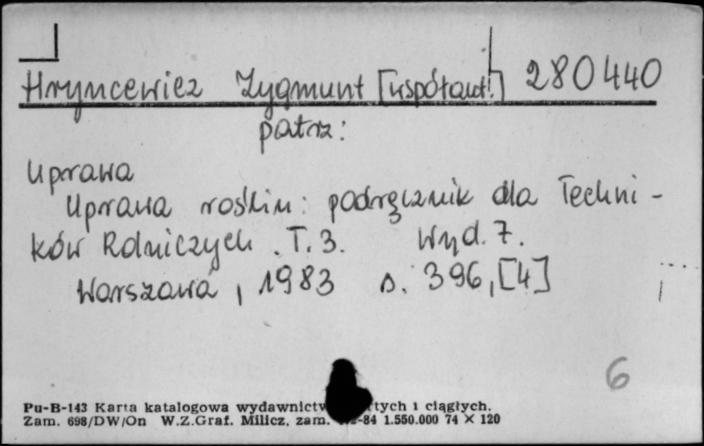 Hryncewicz Zygmunt [współaut.] 280440
patrz:
Uprawa
Uprawa roślin: podręcznik dla Techni-
ków Rolniczych . T. 3. Wyd. 7.
Warszawa, 1983 s. 396, [4]
6
Pu-B-143 Karta katalogowa ciągłych.
Zam. 698/DW/On W.Z.Graf. Milicz, zam. 84 1.550.000 74 × 120